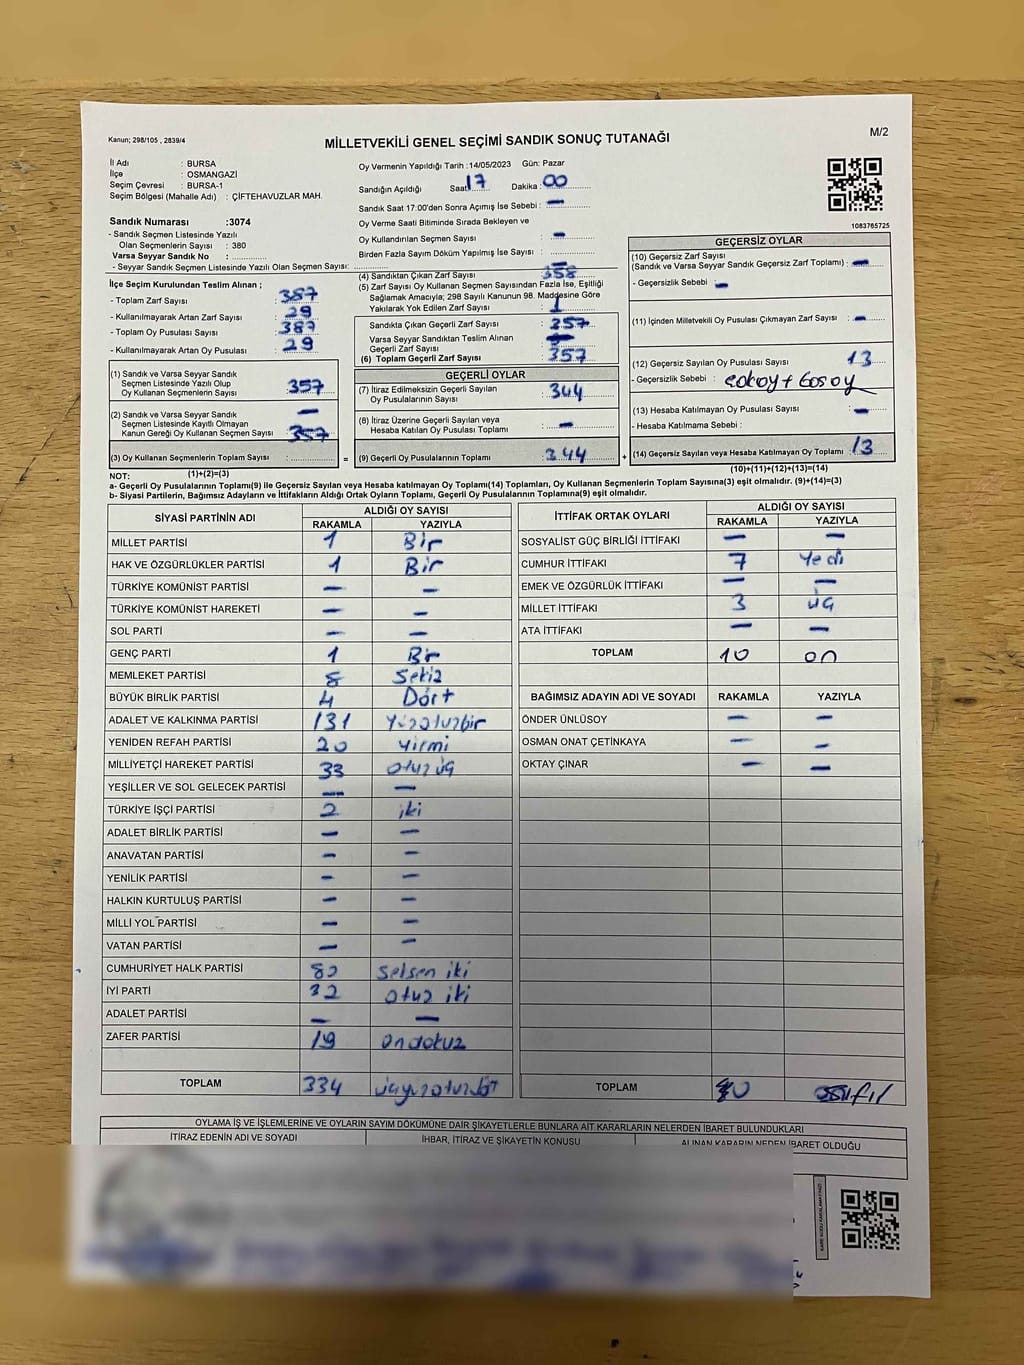 Kanun; 298/105 , 2839/4
MİLLETVEKİLİ GENEL SEÇİMİ SANDIK SONUÇ TUTANAĞI
M/2
İl Adı : BURSA
İlçe : OSMANGAZİ
Seçim Çevresi : BURSA-1
Seçim Bölgesi (Mahalle Adı) : ÇİFTEHAVUZLAR MAH.
Sandık Numarası :3074
- Sandık Seçmen Listesinde Yazılı
Olan Seçmenlerin Sayısı : 380
Varsa Seyyar Sandık No :
- Seyyar Sandık Seçmen Listesinde Yazılı Olan Seçmen Sayısı:
İlçe Seçim Kurulundan Teslim Alınan ;
- Toplam Zarf Sayısı : 387
- Kullanılmayarak Artan Zarf Sayısı : 29
- Toplam Oy Pusulası Sayısı : 387
- Kullanılmayarak Artan Oy Pusulası : 29
(1) Sandık ve Varsa Seyyar Sandık
Seçmen Listesinde Yazılı Olup
Oy Kullanan Seçmenlerin Sayısı : 357
(2) Sandık ve Varsa Seyyar Sandık
Seçmen Listesinde Kayıtlı Olmayan
Kanun Gereği Oy Kullanan Seçmen Sayısı : —
357
(3) Oy Kullanan Seçmenlerin Toplam Sayısı :
Oy Vermenin Yapıldığı Tarih :14/05/2023 Gün: Pazar
Sandığın Açıldığı Saat: 17 Dakika : 00
Sandık Saat 17:00'den Sonra Açımış İse Sebebi : —
Oy Verme Saati Bitiminde Sırada Bekleyen ve
Oy Kullandırılan Seçmen Sayısı : —
Birden Fazla Sayım Döküm Yapılmış İse Sayısı : —
(4) Sandıktan Çıkan Zarf Sayısı : 358
(5) Zarf Sayısı Oy Kullanan Seçmen Sayısından Fazla İse, Eşitliği
Sağlamak Amacıyla; 298 Sayılı Kanunun 98. Maddesine Göre
Yakılarak Yok Edilen Zarf Sayısı : 1
Sandıkta Çıkan Geçerli Zarf Sayısı : 357
Varsa Seyyar Sandıktan Teslim Alınan
Geçerli Zarf Sayısı : —
(6) Toplam Geçerli Zarf Sayısı : 357
GEÇERLİ OYLAR
(7) İtiraz Edilmeksizin Geçerli Sayılan
Oy Pusulalarının Sayısı : 344
(8) İtiraz Üzerine Geçerli Sayılan veya
Hesaba Katılan Oy Pusulası Toplamı : —
= (9) Geçerli Oy Pusulalarının Toplamı : 344 +
1083765725
GEÇERSİZ OYLAR
(10) Geçersiz Zarf Sayısı
(Sandık ve Varsa Seyyar Sandık Geçersiz Zarf Toplamı) : —
- Geçersizlik Sebebi : —
(11) İçinden Milletvekili Oy Pusulası Çıkmayan Zarf Sayısı : —
(12) Geçersiz Sayılan Oy Pusulası Sayısı : 13
- Geçersizlik Sebebi :
(13) Hesaba Katılmayan Oy Pusulası Sayısı : —
- Hesaba Katılmama Sebebi :
(14) Geçersiz Sayılan veya Hesaba Katılmayan Oy Toplamı : 13
NOT: (1)+(2)=(3)
(10)+(11)+(12)+(13)=(14)
a- Geçerli Oy Pusulalarının Toplamı(9) ile Geçersiz Sayılan veya Hesaba katılmayan Oy Toplamı(14) Toplamları, Oy Kullanan Seçmenlerin Toplam Sayısına(3) eşit olmalıdır. (9)+(14)=(3)
b- Siyasi Partilerin, Bağımsız Adayların ve İttifakların Aldığı Ortak Oyların Toplamı, Geçerli Oy Pusulalarının Toplamına(9) eşit olmalıdır.
SİYASİ PARTİNİN ADI ALDIĞI OY SAYISI
RAKAMLA YAZIYLA
MİLLET PARTİSİ 1 Bir
HAK VE ÖZGÜRLÜKLER PARTİSİ 1 Bir
TÜRKİYE KOMÜNİST PARTİSİ — —
TÜRKİYE KOMÜNİST HAREKETİ — —
SOL PARTİ — —
GENÇ PARTİ 1 Bir
MEMLEKET PARTİSİ 8 Sekiz
BÜYÜK BİRLİK PARTİSİ 4 Dört
ADALET VE KALKINMA PARTİSİ 131 Yüzotuzbir
YENİDEN REFAH PARTİSİ 20 Yirmi
MİLLİYETÇİ HAREKET PARTİSİ 33 otuz üç
YEŞİLLER VE SOL GELECEK PARTİSİ — —
TÜRKİYE İŞÇİ PARTİSİ 2 iki
ADALET BİRLİK PARTİSİ — —
ANAVATAN PARTİSİ — —
YENİLİK PARTİSİ — —
HALKIN KURTULUŞ PARTİSİ — —
MİLLİ YOL PARTİSİ — —
VATAN PARTİSİ — —
CUMHURİYET HALK PARTİSİ 82 Selsen iki
İYİ PARTİ 32 otuz iki
ADALET PARTİSİ — —
ZAFER PARTİSİ 19 ondokuz
TOPLAM 334 üçyüzotuzdört
İTTİFAK ORTAK OYLARI ALDIĞI OY SAYISI
RAKAMLA YAZIYLA
SOSYALİST GÜÇ BİRLİĞİ İTTİFAKI — —
CUMHUR İTTİFAKI 7 Yedi
EMEK VE ÖZGÜRLÜK İTTİFAKI — —
MİLLET İTTİFAKI 3 üç
ATA İTTİFAKI — —
TOPLAM 10 on
BAĞIMSIZ ADAYIN ADI VE SOYADI RAKAMLA YAZIYLA
ÖNDER ÜNLÜSOY — —
OSMAN ONAT ÇETİNKAYA — —
OKTAY ÇINAR — —
TOPLAM 0 sıfır
OYLAMA İŞ VE İŞLEMLERİNE VE OYLARIN SAYIM DÖKÜMÜNE DAİR ŞİKAYETLERLE BUNLARA AİT KARARLARIN NELERDEN İBARET BULUNDUKLARI
İTİRAZ EDENİN ADI VE SOYADI İHBAR, İTİRAZ VE ŞİKAYETİN KONUSU ALINAN KARARIN NEDEN İBARET OLDUĞU